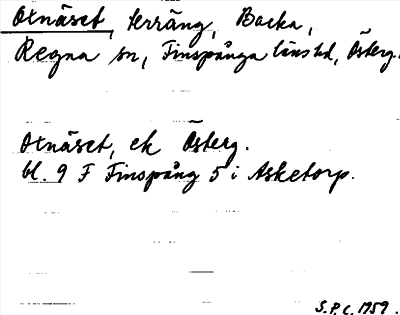 Oxnäset, terräng, Backa,
Regna sn, Finspånga länshd, Österg.
Oxnäset, ek Österg.
bl. 9 F Finspång 5 i Asketorp.
S.P.C. 1959.